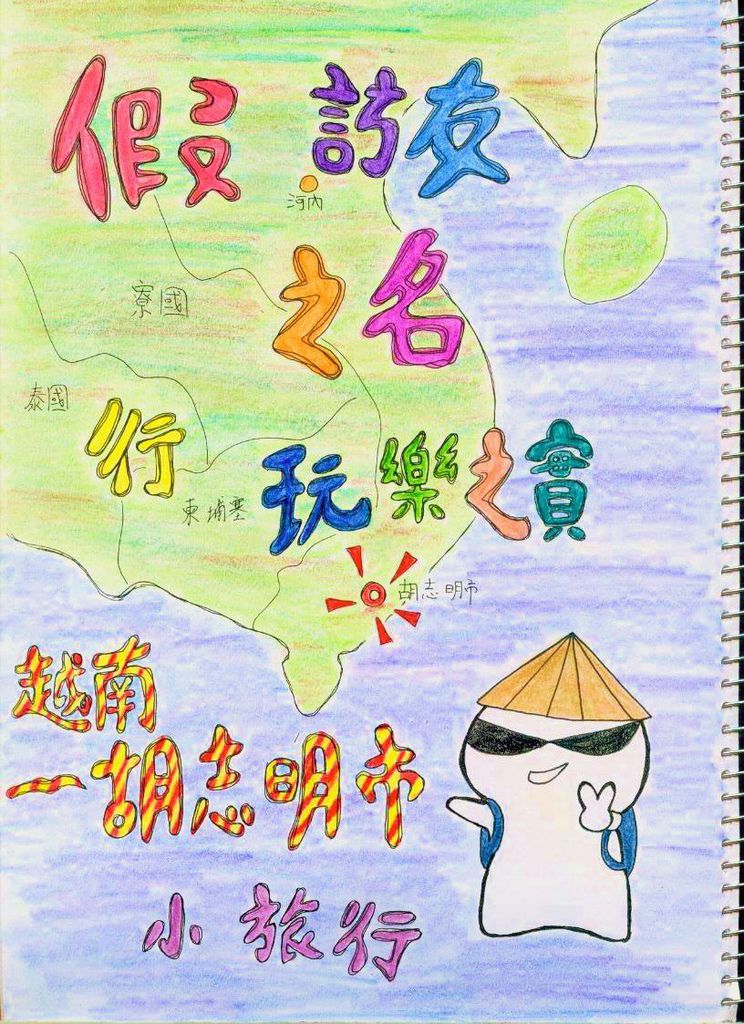 假 訪友
河內
之名
寮國
泰國
行 玩樂之實
柬埔寨
胡志明市
越南
一胡志明市
小旅行